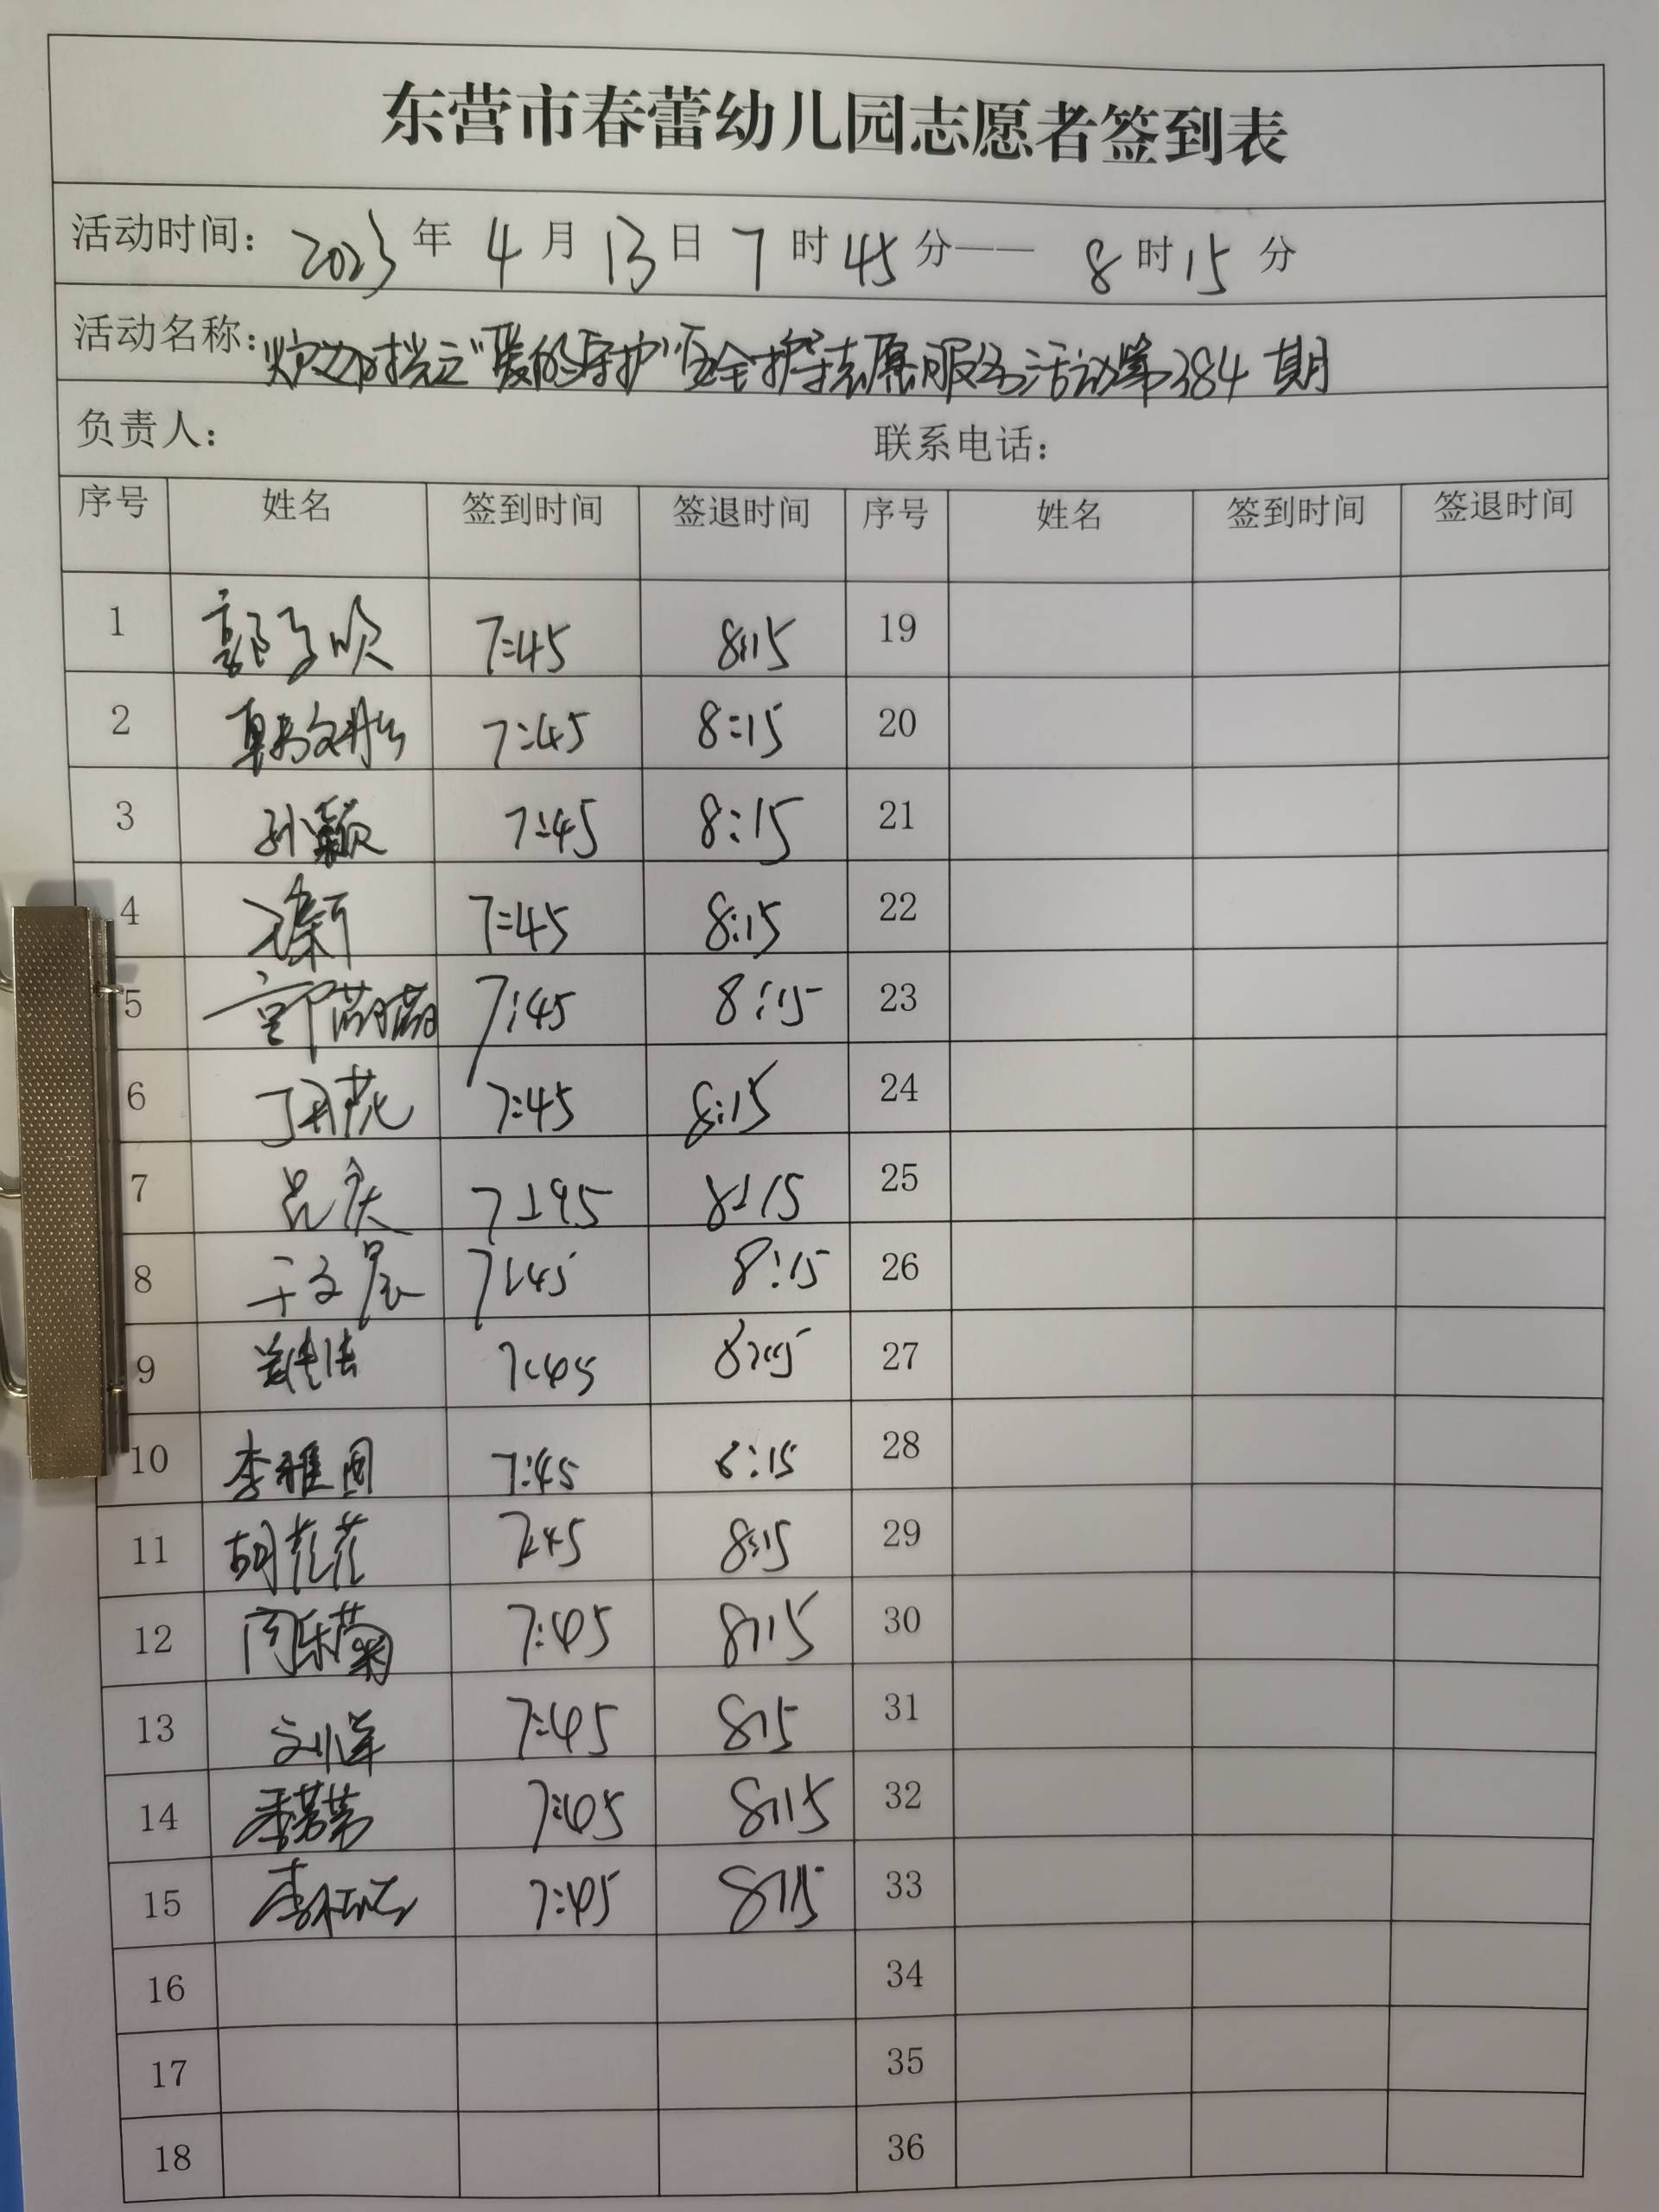 东营市春蕾幼儿园志愿者签到表
活动时间: 2023 年 4 月 13 日 7 时 45 分—— 8 时 15 分
活动名称: "爱的守护"安全护导志愿服务活动第384期
负责人: 联系电话:
序号 姓名 签到时间 签退时间 序号 姓名 签到时间 签退时间
1 7:45 8:15 19
2 韩文彤 7:45 8:15 20
3 孙颖 7:45 8:15 21
4 7:45 8:15 22
5 郭萌萌 7:45 8:15 23
6 7:45 8:15 24
7 吕庆 7:45 8:15 25
8 于文晨 7:45 8:15 26
9 7:45 8:15 27
10 李雅圆 7:45 8:15 28
11 胡花花 7:45 8:15 29
12 闫乐菊 7:45 8:15 30
13 刘洋 7:45 8:15 31
14 7:45 8:15 32
15 7:45 8:15 33
16 34
17 35
18 36